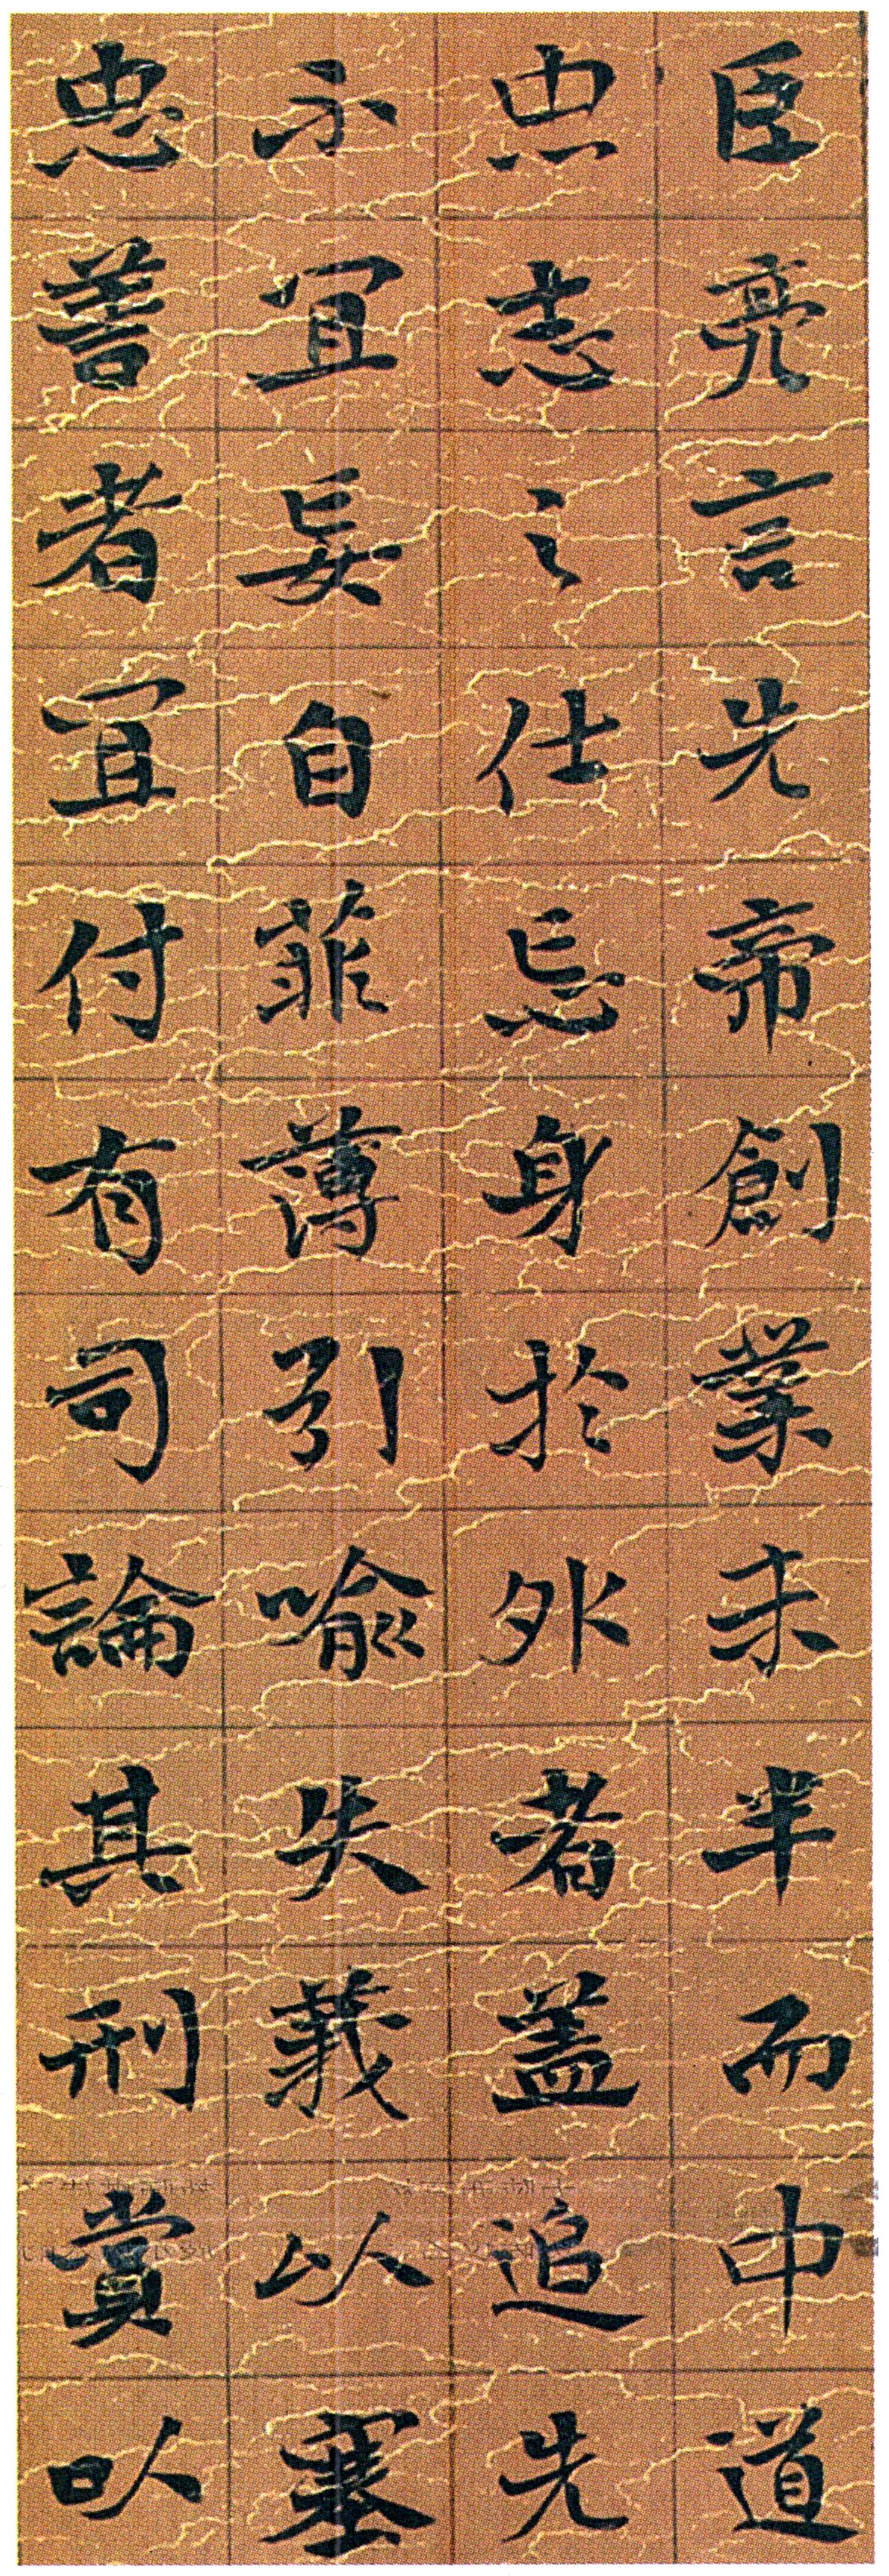 臣亮言先帝創業未半而中道
忠志之仕忘身於外者蓋追先
不宜妄自菲薄引喻失義以塞
忠善者宜付有司論其刑賞以